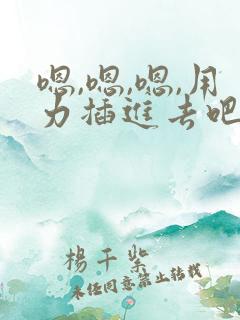 嗯,嗯,嗯,用
力插进去吧
杨千紫
未经同意禁止转载